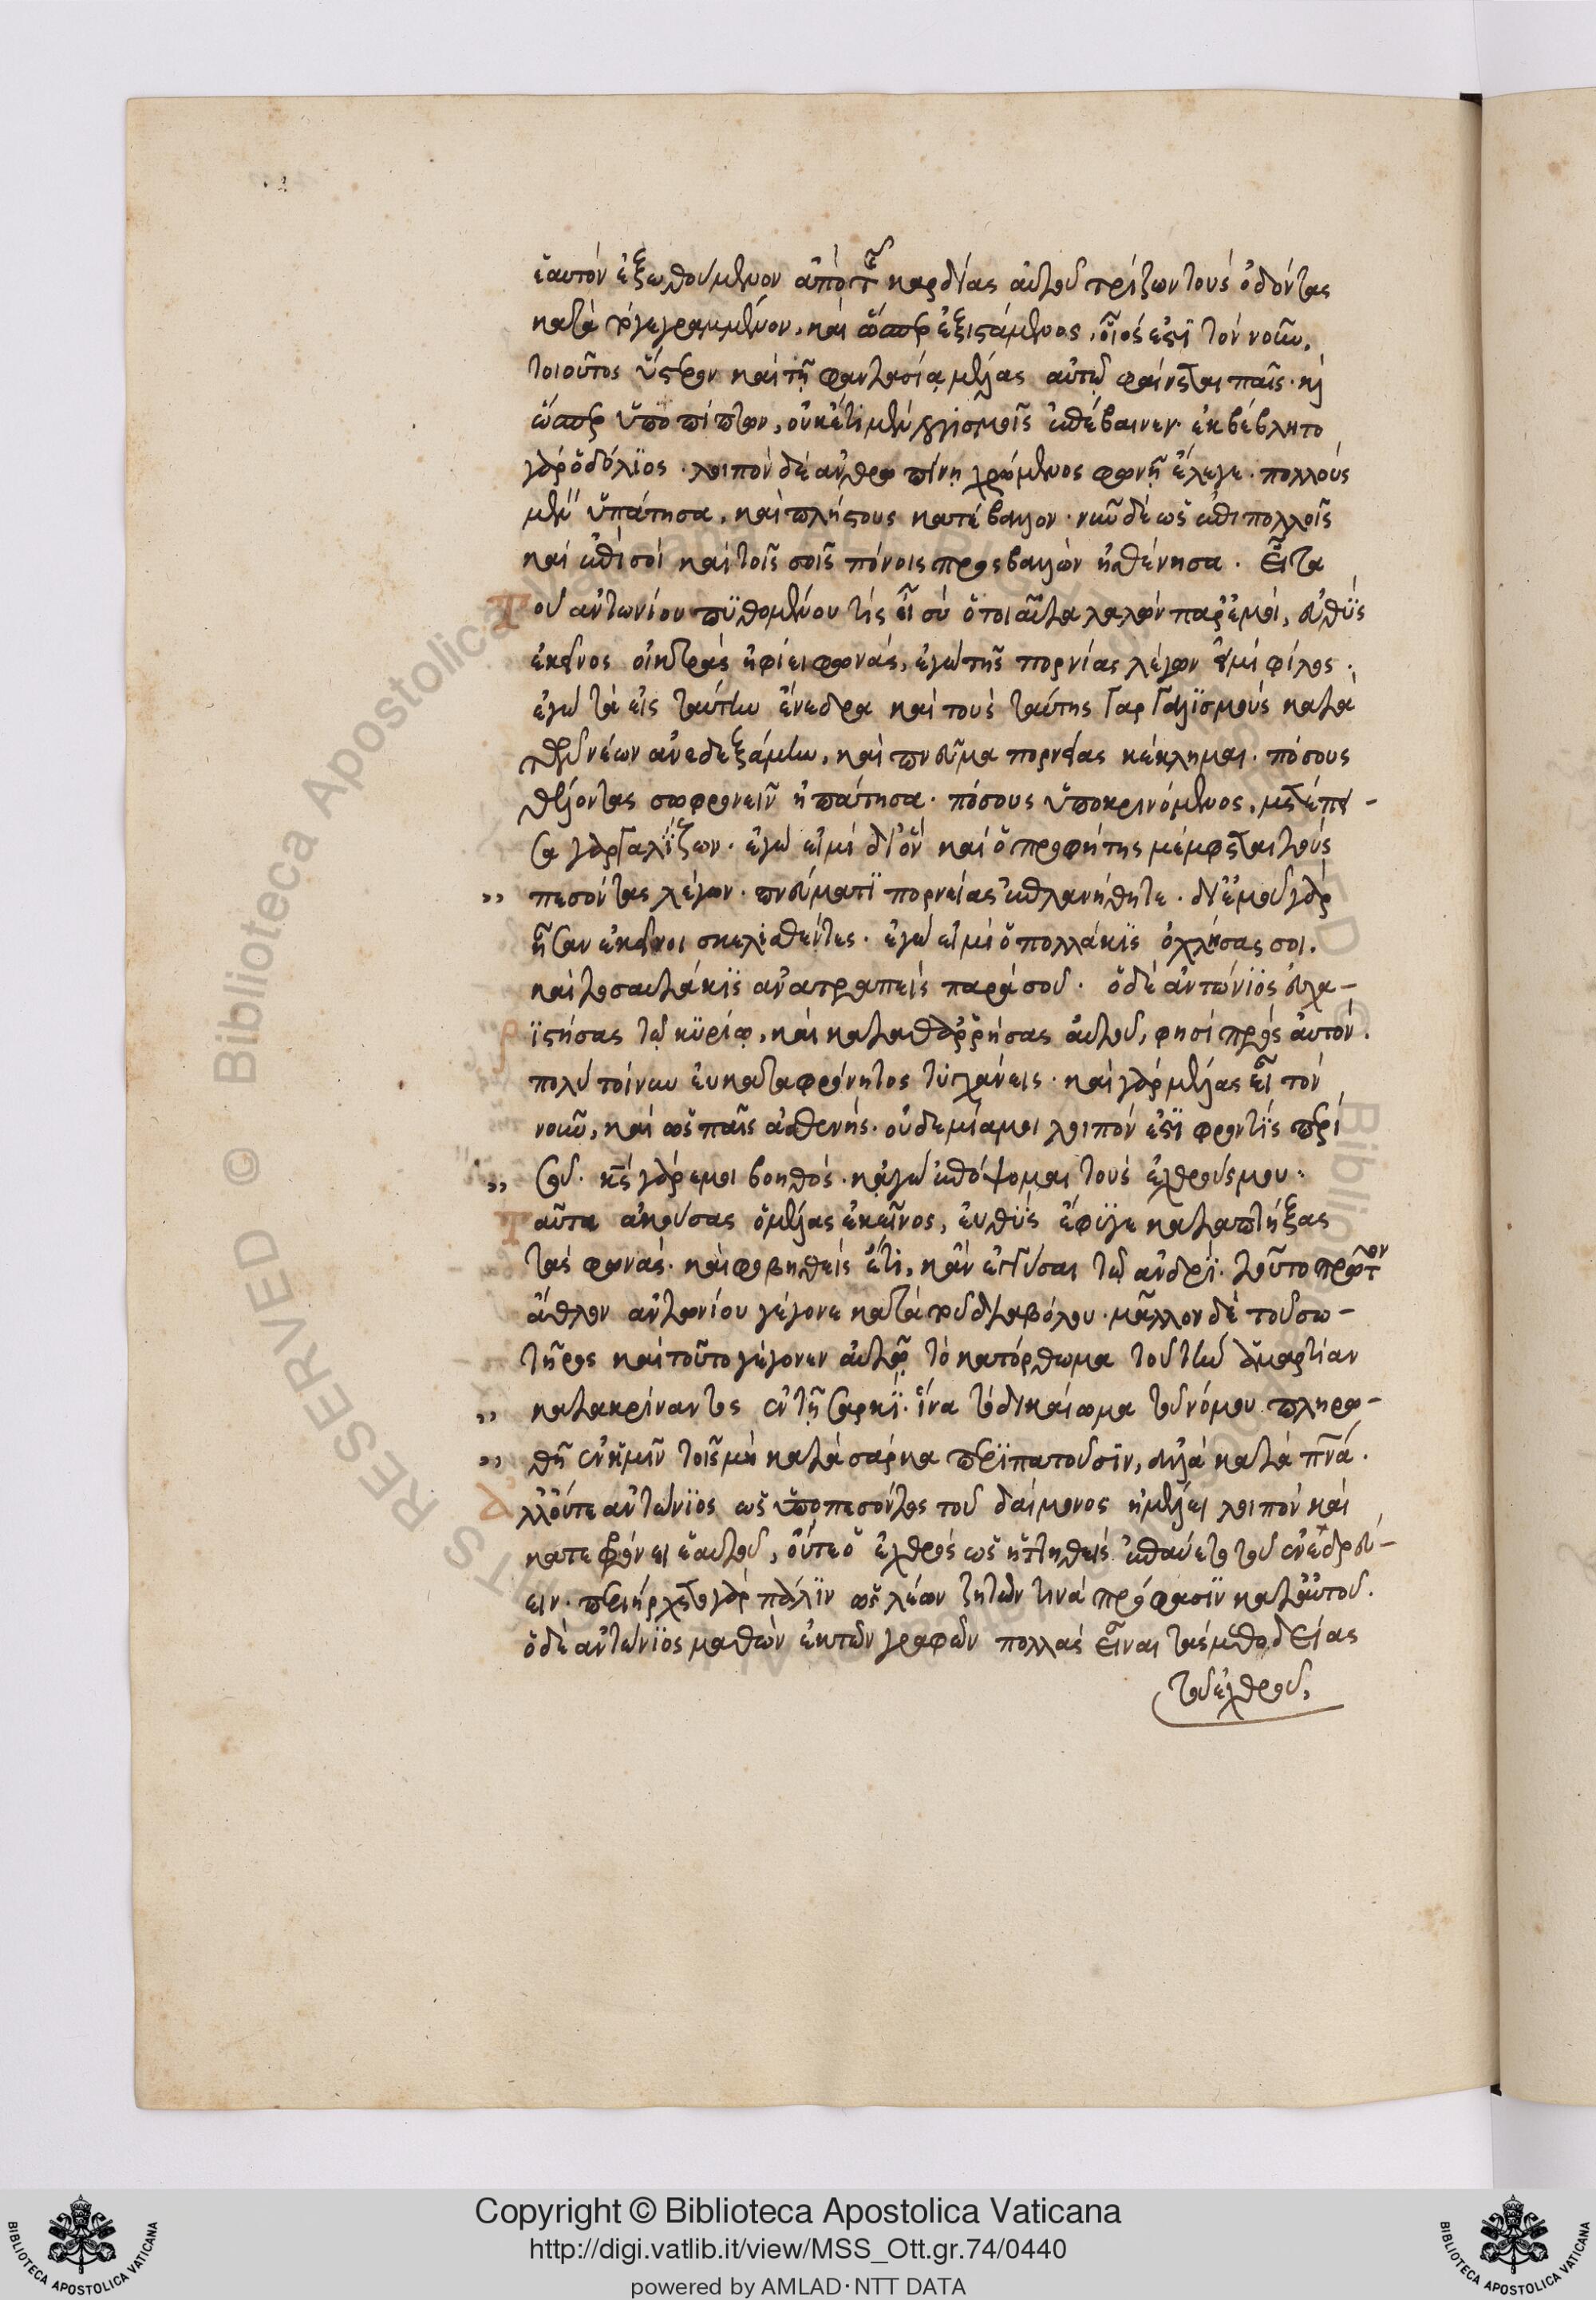 ἑαυτὸν ἐξωθούμενον ἀπὸ τῆς καρδίας αὐτοῦ τρίζων τοὺς ὀδόντας
κατὰ τὸ γεγραμμένον, καὶ ὥσπερ ἐξιστάμενος, οἷός ἐστι τὸν νοῦν,
τοιοῦτος ὕστερον καὶ τῇ φαντασίᾳ μέλας αὐτῷ φαίνεται παῖς· καὶ
ὥσπερ ὑποπίπτων, οὐκέτι μὲν λογισμοῖς ἐπέβαινεν· ἐκβέβλητο
γὰρ ὁ δόλιος· λοιπὸν δὲ ἀνθρωπίνῃ χρώμενος φωνῇ ἔλεγε· πολλοὺς
μὲν ὑπάτησα, καὶ πλήστους κατέβαλον· νῦν δὲ ὡς ἐπὶ πολλοῖς
καὶ ἐπὶ σοὶ καὶ τοῖς σοῖς πόνοις προσβαλὼν ἠσθένησα. Εἶτα
τοῦ ἀντωνίου πυθομένου τίς εἶ σὺ ὁ τοιαῦτα λαλῶν παρ' ἐμοὶ, εὐθὺς
ἐκεῖνος οἰκτρὰς ἠφίει φωνὰς, ἐγὼ τῆς πορνίας λέγων εἰμὶ φίλος·
ἐγὼ τὰ εἰς ταύτην ἔνεδρα καὶ τοὺς ταύτης γαργαλισμοὺς κατὰ
τῶν νέων ἀνεδεξάμην, καὶ πνεῦμα πορνείας κέκλημαι· πόσους
θέλοντας σωφρονεῖν ἠπάτησα· πόσους ὑποκρινόμενος, μετέπει-
σα γαργαλίζων· ἐγώ εἰμι δι' ὃν καὶ ὁ προφήτης μέμφεται τοὺς
,, πεσόντας λέγων· πνεύματι πορνείας ἐπλανήθητε· δι' ἐμοῦ γὰρ
ἦσαν ἐκεῖνοι σκελισθέντες· ἐγώ εἰμι ὁ πολλάκις ὀχλήσας σοι.
καὶ τοσαυτάκις ἀνατραπεὶς παρὰ σοῦ· ὁ δὲ ἀντώνιος εὐχα-
ριστήσας τῷ κυρίῳ, καὶ καταθαρρήσας αὐτοῦ, φησὶ πρὸς αὐτόν·
πολὺ τοίνυν εὐκαταφρόνητος τυγχάνεις· καὶ γὰρ μέλας εἶ τὸν
νοῦν, καὶ ὡς παῖς ἀσθενής· οὐδεμία μοι λοιπόν ἐστι φροντὶς περὶ
,, σοῦ· κς γὰρ ἐμοὶ βοηθός· κἀγὼ ἐπόψομαι τοὺς ἐχθρούς μου·
ταῦτα ἀκούσας ὁ μέλας ἐκεῖνος, εὐθὺς ἔφυγε καταπτήξας
τὰς φωνάς· καὶ φοβηθεὶς ἔτι, κἂν ἐγγύσαι τῷ ἀνδρί· τοῦτο πρῶτον
ἄθλον ἀντωνίου γέγονε κατὰ τοῦ διαβόλου· μᾶλλον δὲ τοῦ σω-
τῆρος καὶ τοῦτο γέγονεν αὐτῷ τὸ κατόρθωμα τοῦ τὴν ἁμαρτίαν
,, κατακρίναντος ἐν τῇ σαρκί· ἵνα τὸ δικαίωμα τοῦ νόμου πληρω-
,, θῇ ἐν ἡμῖν τοῖς μὴ κατὰ σάρκα περιπατοῦσιν, ἀλλὰ κατὰ πνα.
ἀλλ' οὔτε ἀντώνιος ὡς ὑποπεσόντος τοῦ δαίμονος ἠμέλει λοιπὸν καὶ
κατεφρόνει ἑαυτοῦ, οὔτε ὁ ἐχθρὸς ὡς ἡττηθεὶς ἐπαύετο τοῦ ἐνεδρεύ-
ειν· περιήρχετο γὰρ πάλιν ὡς λέων ζητῶν τινὰ πρόφασιν κατ' αὐτοῦ.
ὁ δὲ ἀντώνιος μαθὼν ἐκ τῶν γραφῶν πολλὰς εἶναι τὰς μεθοδείας
τοῦ ἐχθροῦ,
Copyright © Biblioteca Apostolica Vaticana
http://digi.vatlib.it/view/MSS_Ott.gr.74/0440
powered by AMLAD·NTT DATA